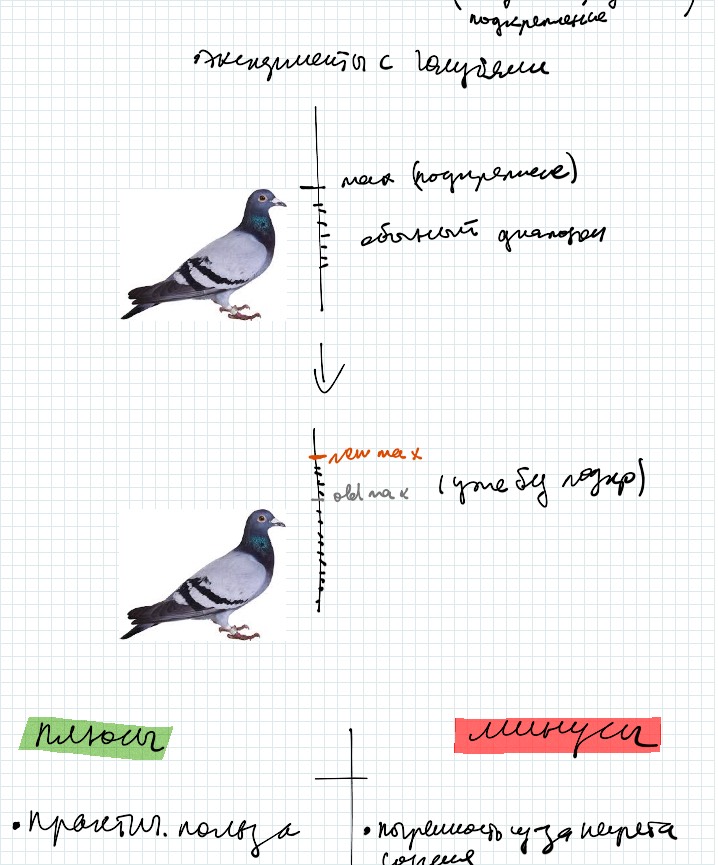 подкрепление
• Эксперименты с голубями
max (подкрепление)
обычный диапазон
new max
old max (уже без подкр)
плюсы
минусы
• практич. польза
• погрешность из-за